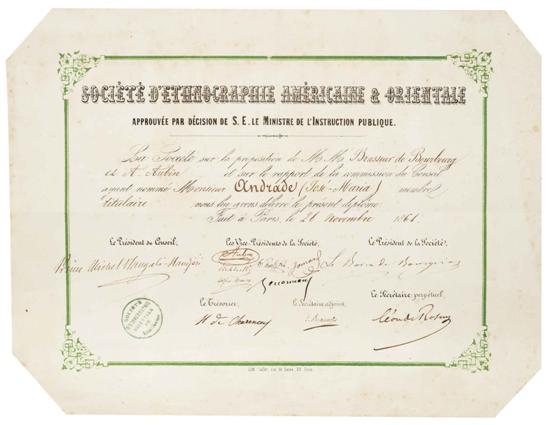 SOCIÉTÉ D'ETHNOGRAPHIE AMÉRICAINE & ORIENTALE
APPROUVÉE PAR DÉCISION DE S. E. LE MINISTRE DE L'INSTRUCTION PUBLIQUE.
La Société sur la proposition de M. M. Brasseur de Bourbourg
et A. Aubin et sur le rapport de la commission du Conseil
ayant nommé Monsieur Andrade (José-Maria) membre
titulaire nous lui avons délivré le présent diplôme.
Fait à Paris, le 26 Novembre 1861.
Le Président du Conseil, Les Vice-Présidents de la Société, Le Président de la Société,
Aubin
Le Baron de Bourgoing
Le Trésorier, Le Secrétaire adjoint, Le Secrétaire perpétuel,
H de Charencey
Léon de Rosny